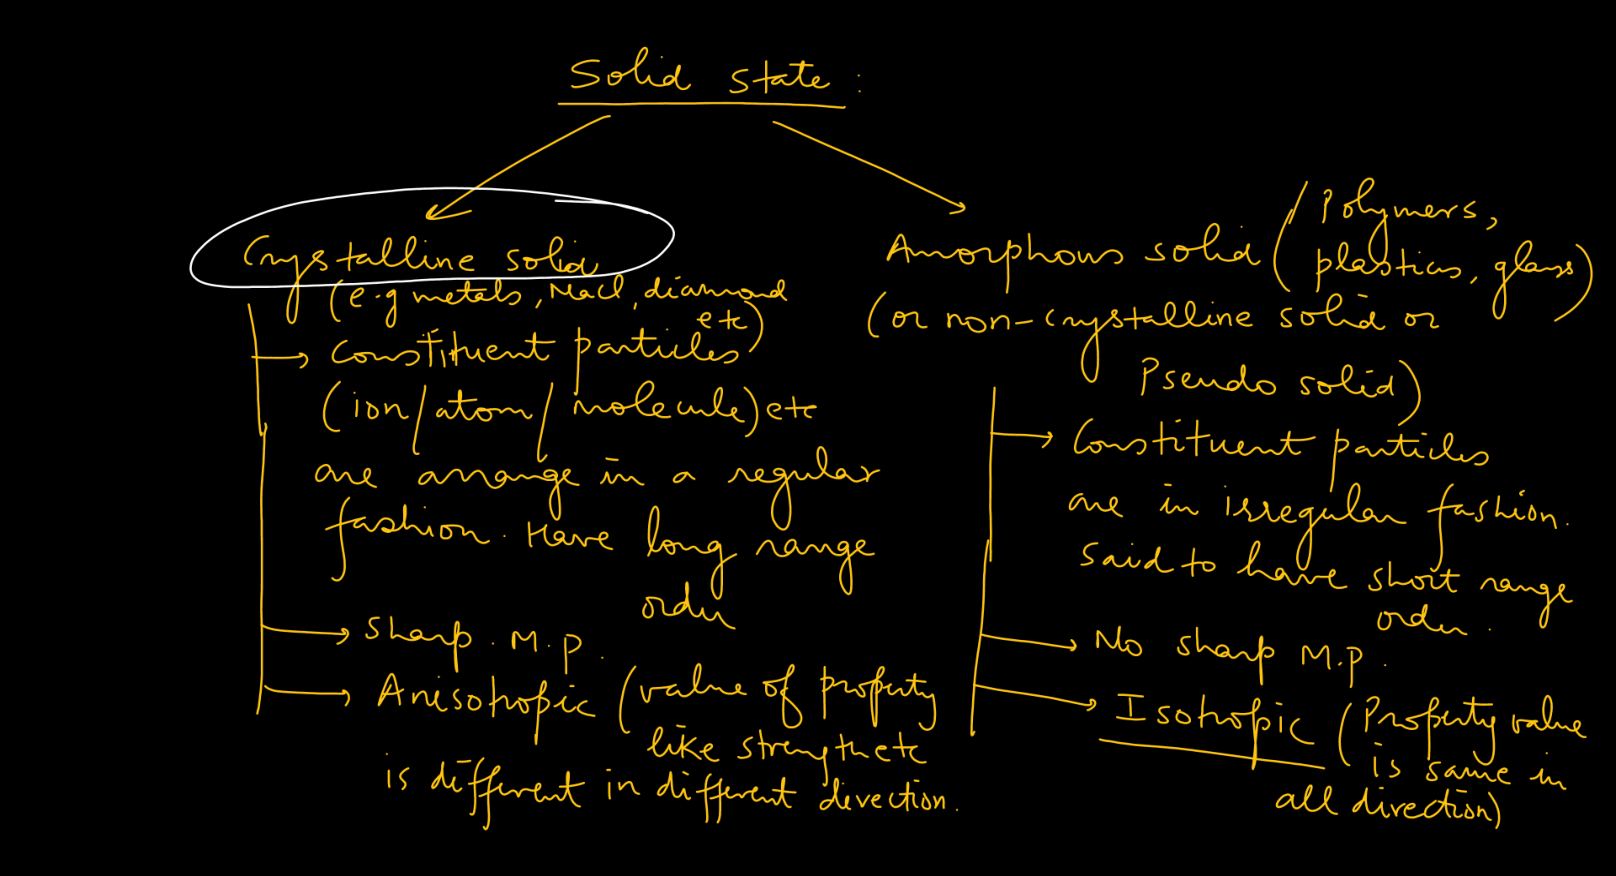 Solid state :
Crystalline solid
(e.g metals, NaCl, diamond
etc)
→ Constituent particles
(ion/atom/molecule) etc
are arrange in a regular
fashion. Have long range
order
→ Sharp. M.P.
→ Anisotropic (value of property
like strength etc
is different in different direction.
Amorphous solid (Polymers,
plastics, glass)
(or non-crystalline solid or
Pseudo solid)
→ Constituent particles
are in irregular fashion.
Said to have short range
order.
→ No sharp M.P.
→ Isotropic (Property value
is same in
all direction)